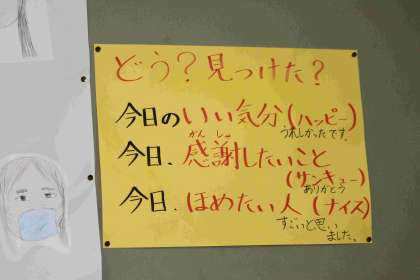 どう?見つけた?
今日のいい気分(ハッピー)
うれしかったです。
かんしゃ
今日、感謝したいこと
(サンキュー)
ありがとう
今日、ほめたい人(ナイス)
すごいと思い
ました。